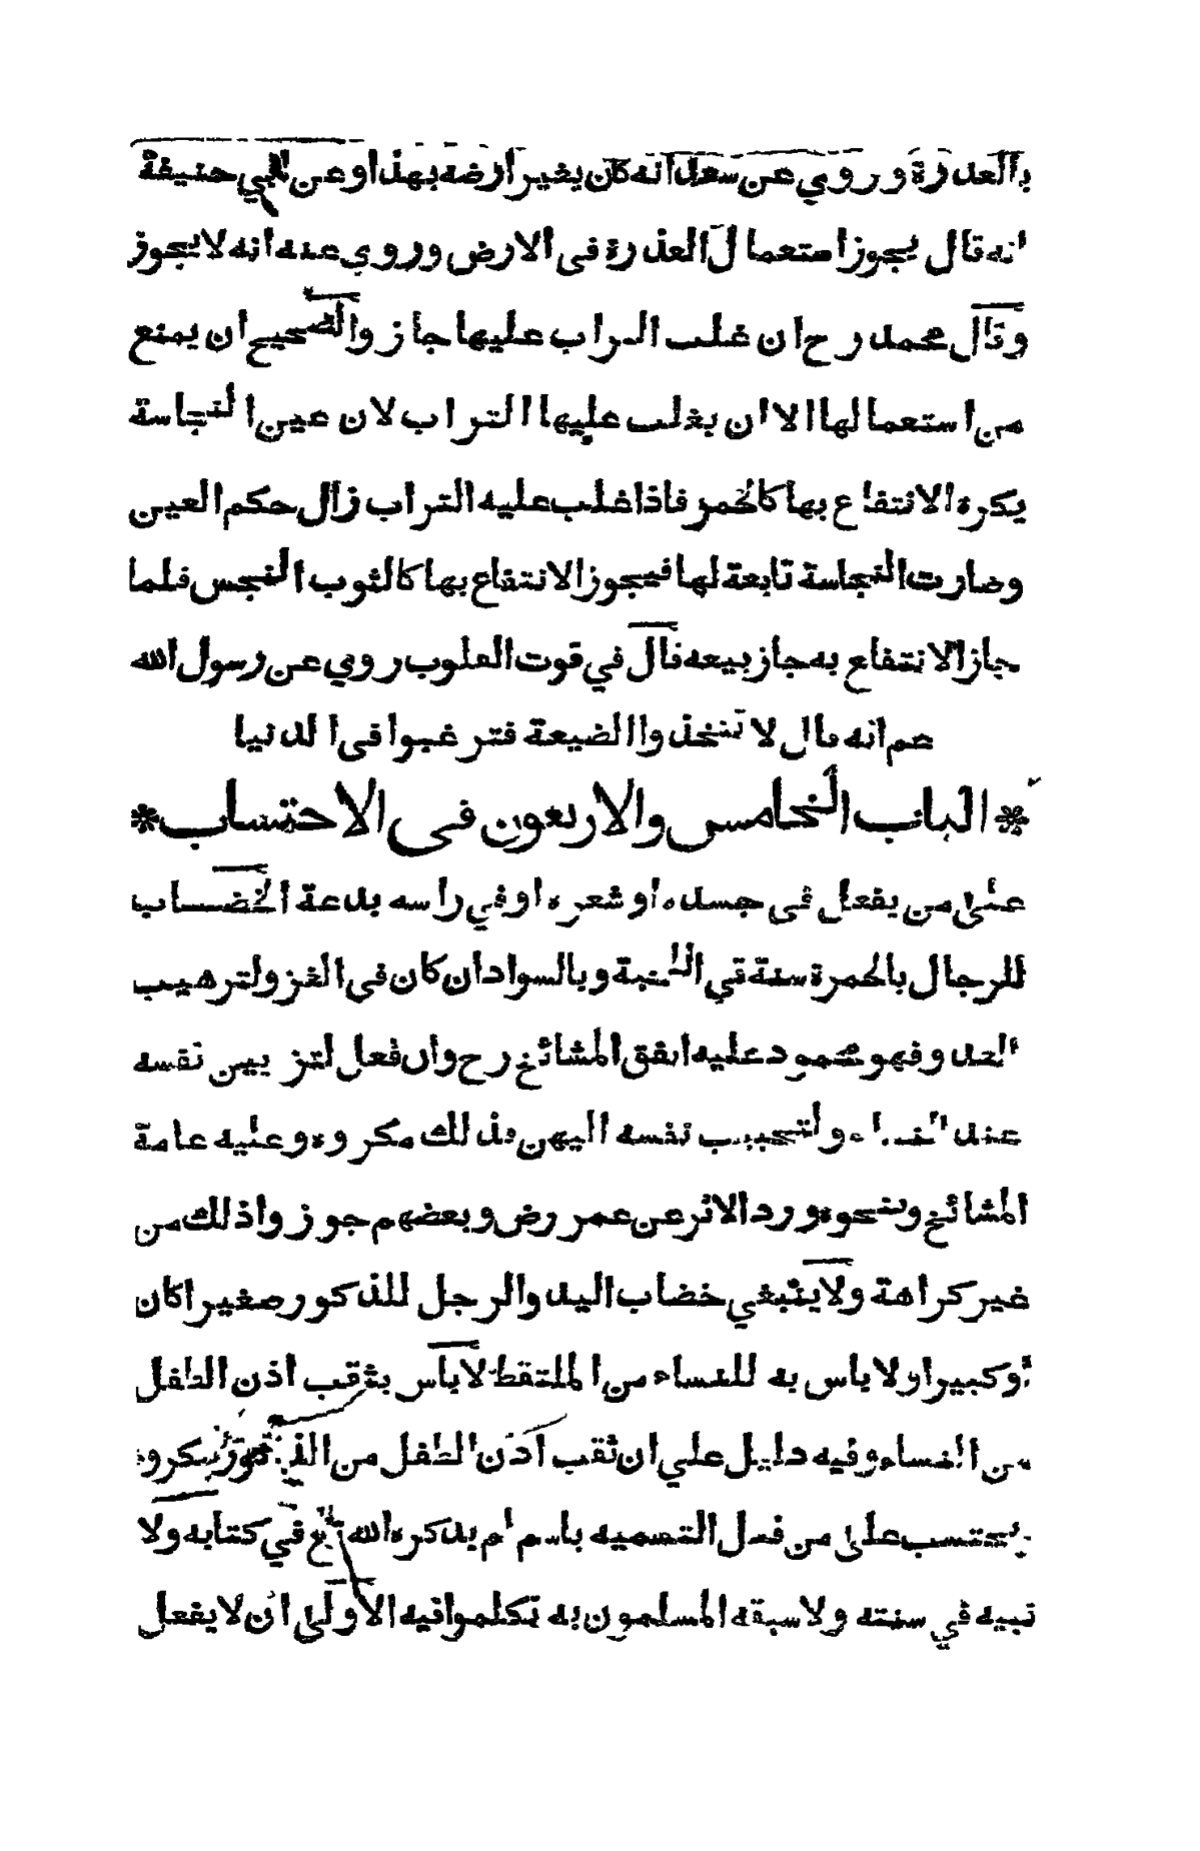 بالعذرة وروي عن سعد انه كان يغير ارضه بهذا وعن ابي حنيفة
انه قال يجوز استعمال العذرة فى الارض وروي عنه انه لا يجوز
وقال محمد رح ان غلب التراب عليها جاز والصحيح ان يمنع
من استعمالها الا ان يغلب عليها التراب لان عين النجاسة
يكره الانتفاع بها كالخمر فاذا غلب عليه التراب زال حكم العين
وصارت النجاسة تابعة لها فيجوز الانتفاع بها كالثوب النجس فلما
جاز الانتفاع به جاز بيعه قال في قوت القلوب روي عن رسول الله
عم انه قال لا تتخذ واالضيعة فترغبوا فى الدنيا
* الباب الخامس والاربعون فى الاحتساب *
على من يفعل فى جسده او شعره او في راسه بدعة الخضاب
للرجال بالحمرة سنة في اللحية وبالسواد ان كان فى الغزو لترهيب
العدو فهو محمود عليه اتفق المشائخ رح وان فعل لتزيين نفسه
عند النساء ولتحبيب نفسه اليهن فذلك مكروه وعليه عامة
المشائخ وبنحوه ورد الاثر عن عمر رض وبعضهم جوزوا ذلك من
غير كراهة ولا ينبغي خضاب اليد والرجل للذكور صغيرا كان
او كبيرا ولا باس به للنساء من الملتقط لا باس بثقب اذن الطفل
من النساء وفيه دليل على ان ثقب اذن الطفل من الذكور مكروه
يحتسب على من فعل التسميه باسم لم يذكره الله تع في كتابه ولا
نبيه في سنته ولا سبقه المسلمون به تكلموا فيه الاولى ان لا يفعل